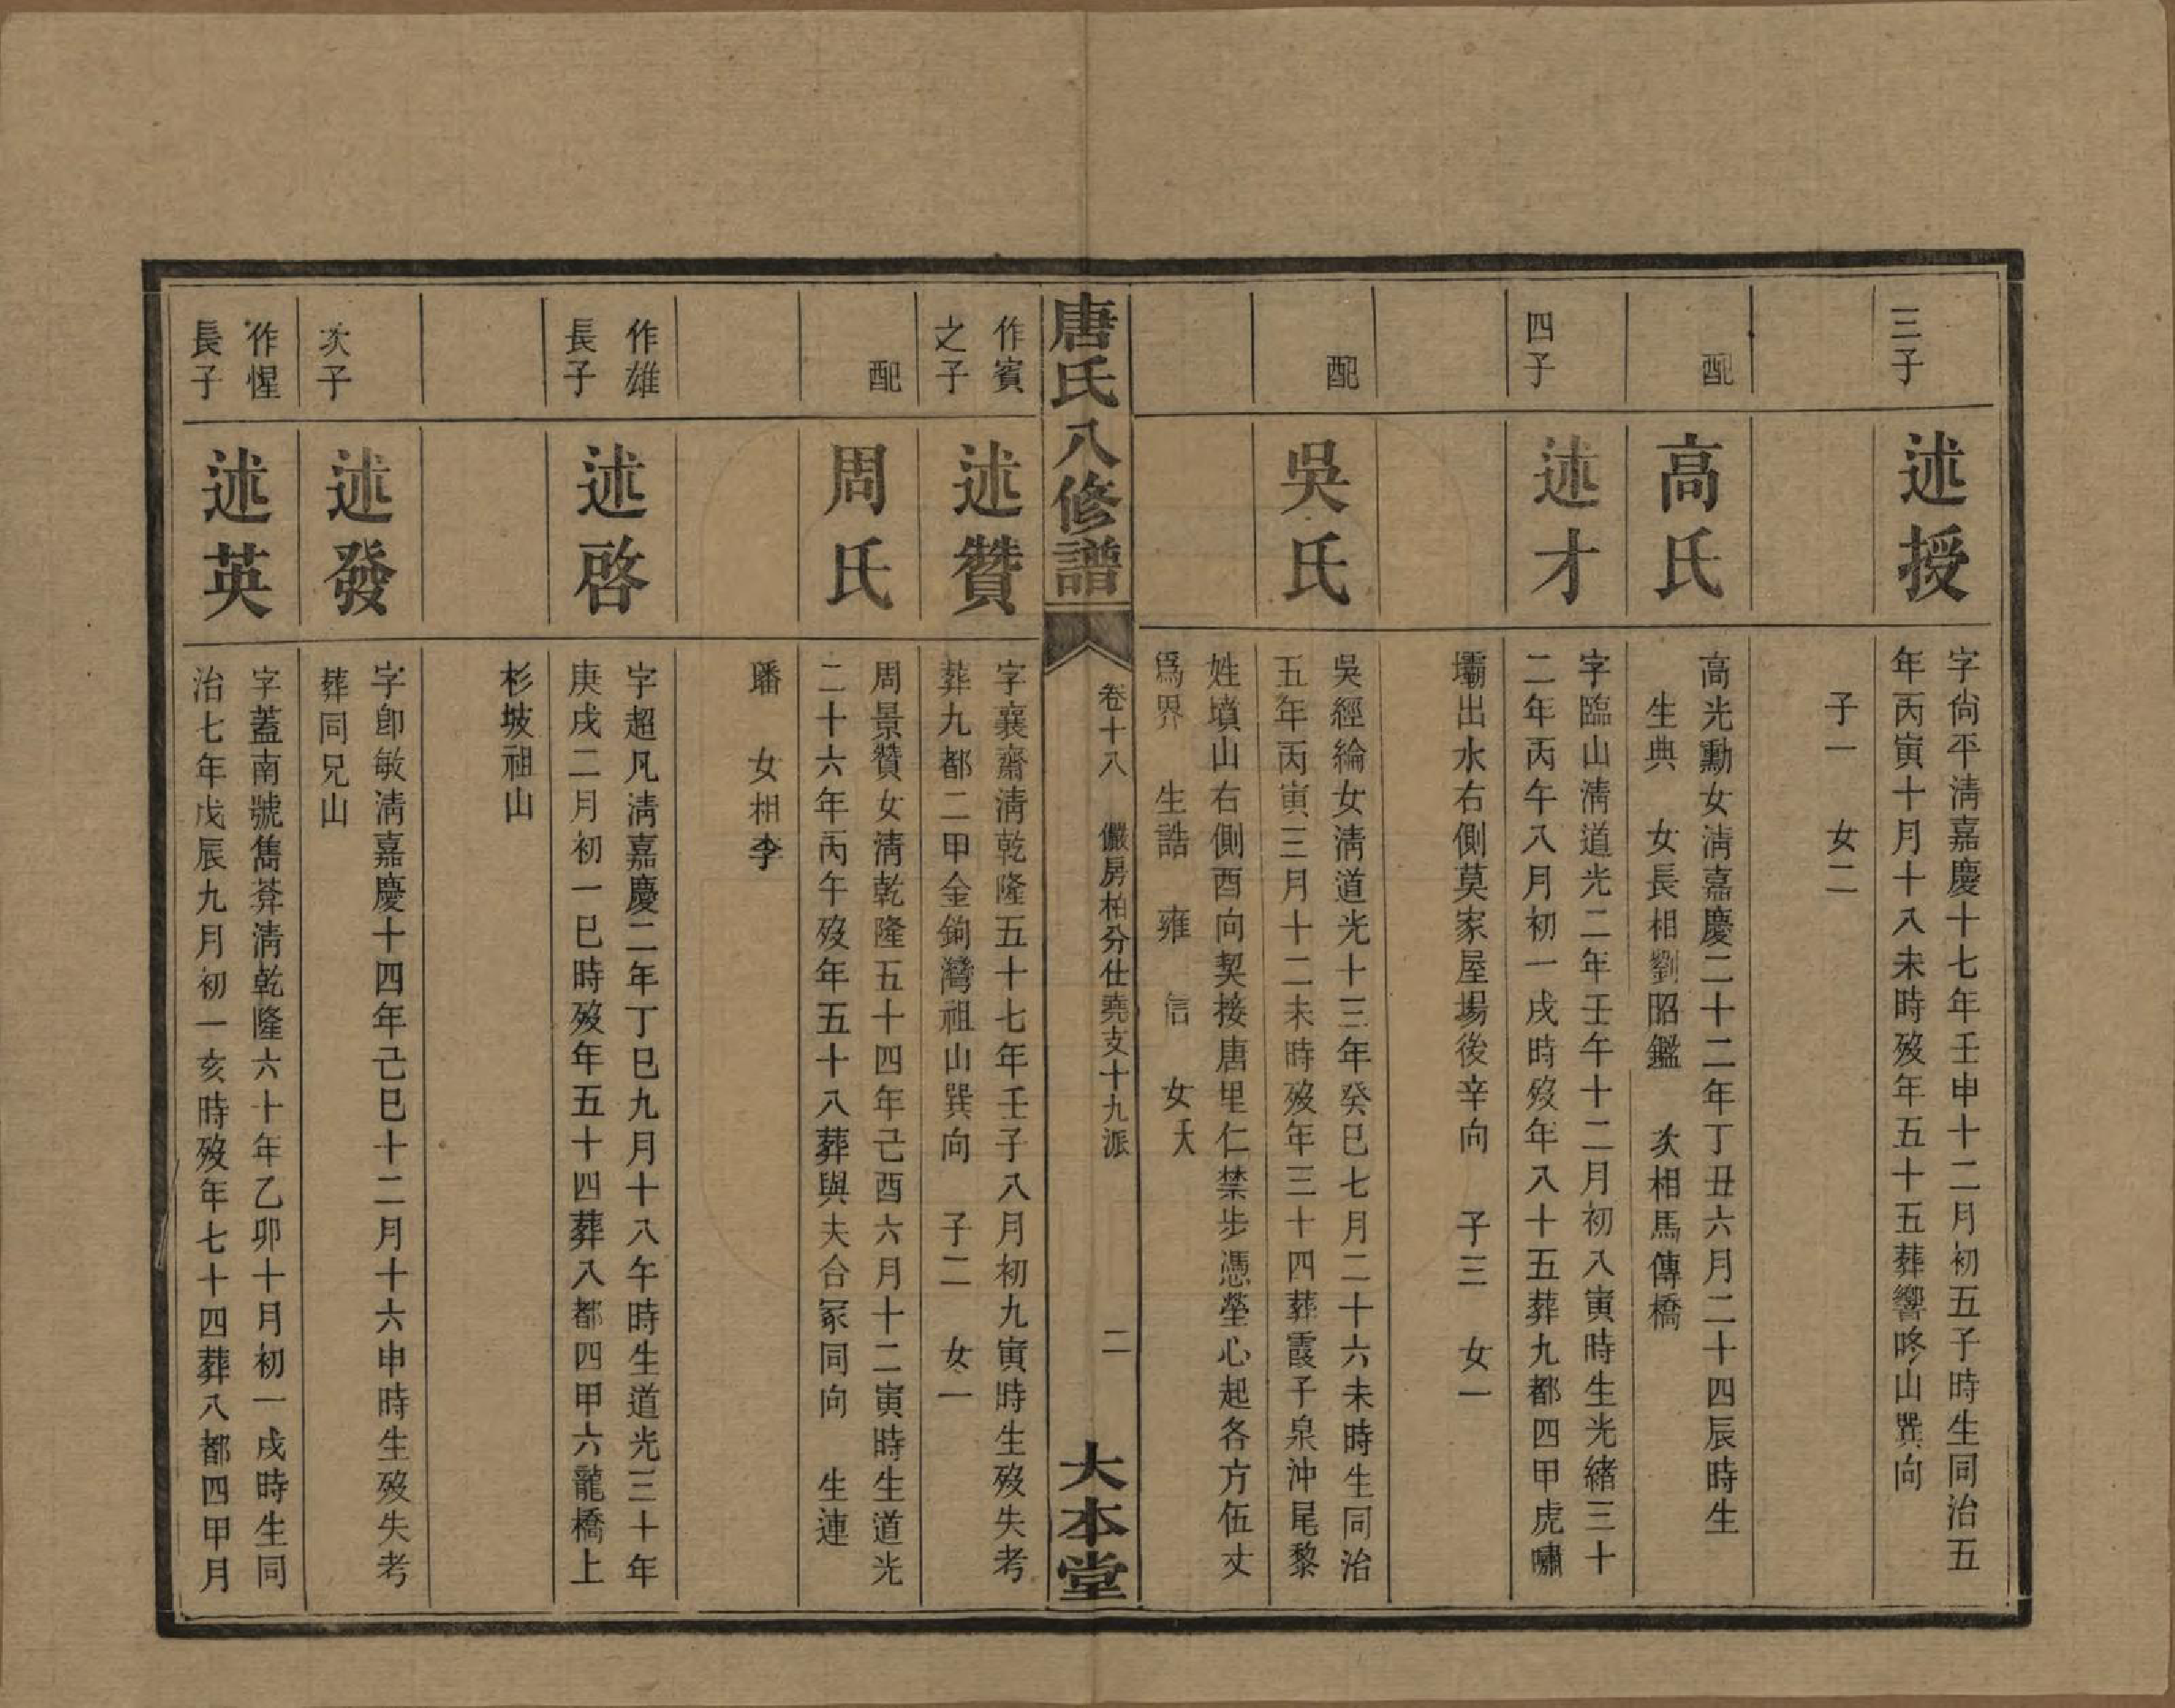 三子
述授
字尙平淸嘉慶十七年壬申十二月初五子時生同治五
年丙寅十月十八未時歿年五十五葬響咚山巽向
子一　女二
配
高氏
高光勳女淸嘉慶二十二年丁丑六月二十四辰時生
生典　女長相劉昭鑑　次相馬傳橋
四子
述才
字臨山淸道光二年壬午十二月初八寅時生光緒三十
二年丙午八月初一戌時歿年八十五葬九都四甲虎嘯
壩出水右側莫家屋場後辛向　子三　女一
配
吳氏
吳經綸女淸道光十三年癸巳七月二十六未時生同治
五年丙寅三月十二未時歿年三十四葬霞子泉沖尾黎
姓墳山右側酉向契接唐里仁禁步憑塋心起各方伍丈
爲界　生誥　雍　信　女夭
唐氏八修譜
卷十八　儼房柏分仕堯支十九派
二
大本堂
作賓
之子
述贊
字襄齋淸乾隆五十七年壬子八月初九寅時生歿失考
葬九都二甲金鉤灣祖山巽向　子二　女一
配
周氏
周景贊女淸乾隆五十四年己酉六月十二寅時生道光
二十六年丙午歿年五十八葬與夫合冢同向　生連
璠　女相李
作雄
長子
述啓
字超凡淸嘉慶二年丁巳九月十八午時生道光三十年
庚戌二月初一巳時歿年五十四葬八都四甲六龍橋上
杉坡祖山
次子
述發
字卽敏淸嘉慶十四年己巳十二月十六申時生歿失考
葬同兄山
作惺
長子
述英
字蓋南號雋莽淸乾隆六十年乙卯十月初一戌時生同
治七年戊辰九月初一亥時歿年七十四葬八都四甲月